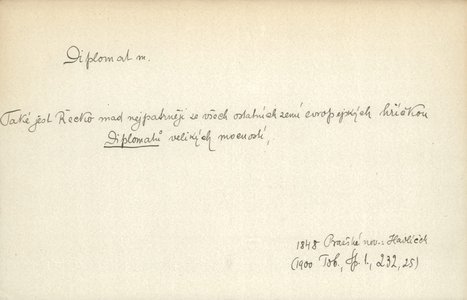 Diplomat m.
Také jest Řecko snad nejpatrněji ze všech ostatních zemí evropejských hříčkou
Diplomatů velikých mocností,
1848 Pražské nov.: Havlíček
(1900 Tob., Sp. 1., 232, 25)